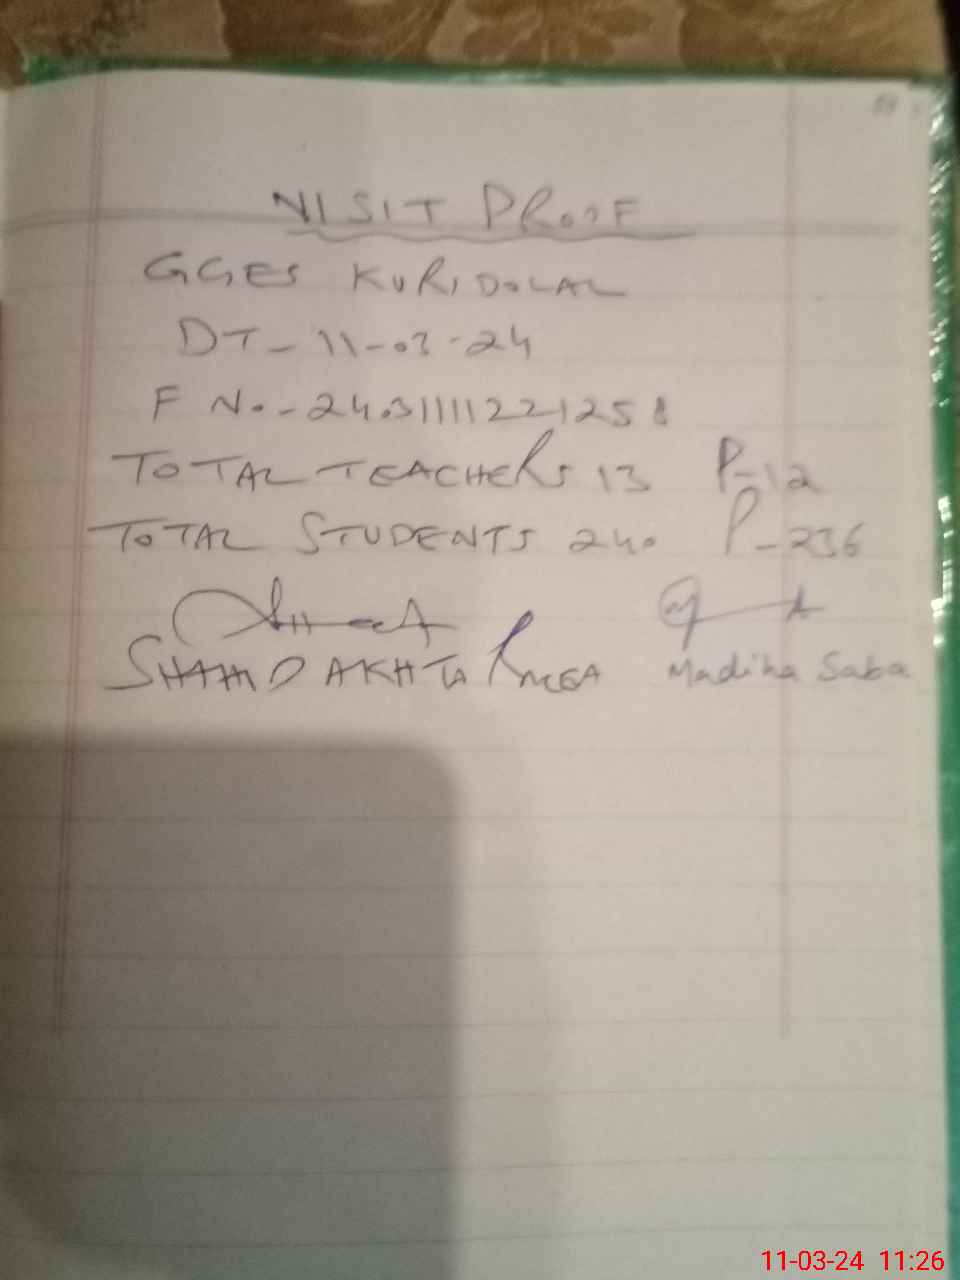 VISIT PROOF
GGES KURIDOLAL
DT- 11-03-24
F No.- 2403111122 1258
TOTAL TEACHERS 13 P-12
TOTAL STUDENTS 240 P-236
SHAHID AKHTAR MEA Madiha Saba
11-03-24 11:26